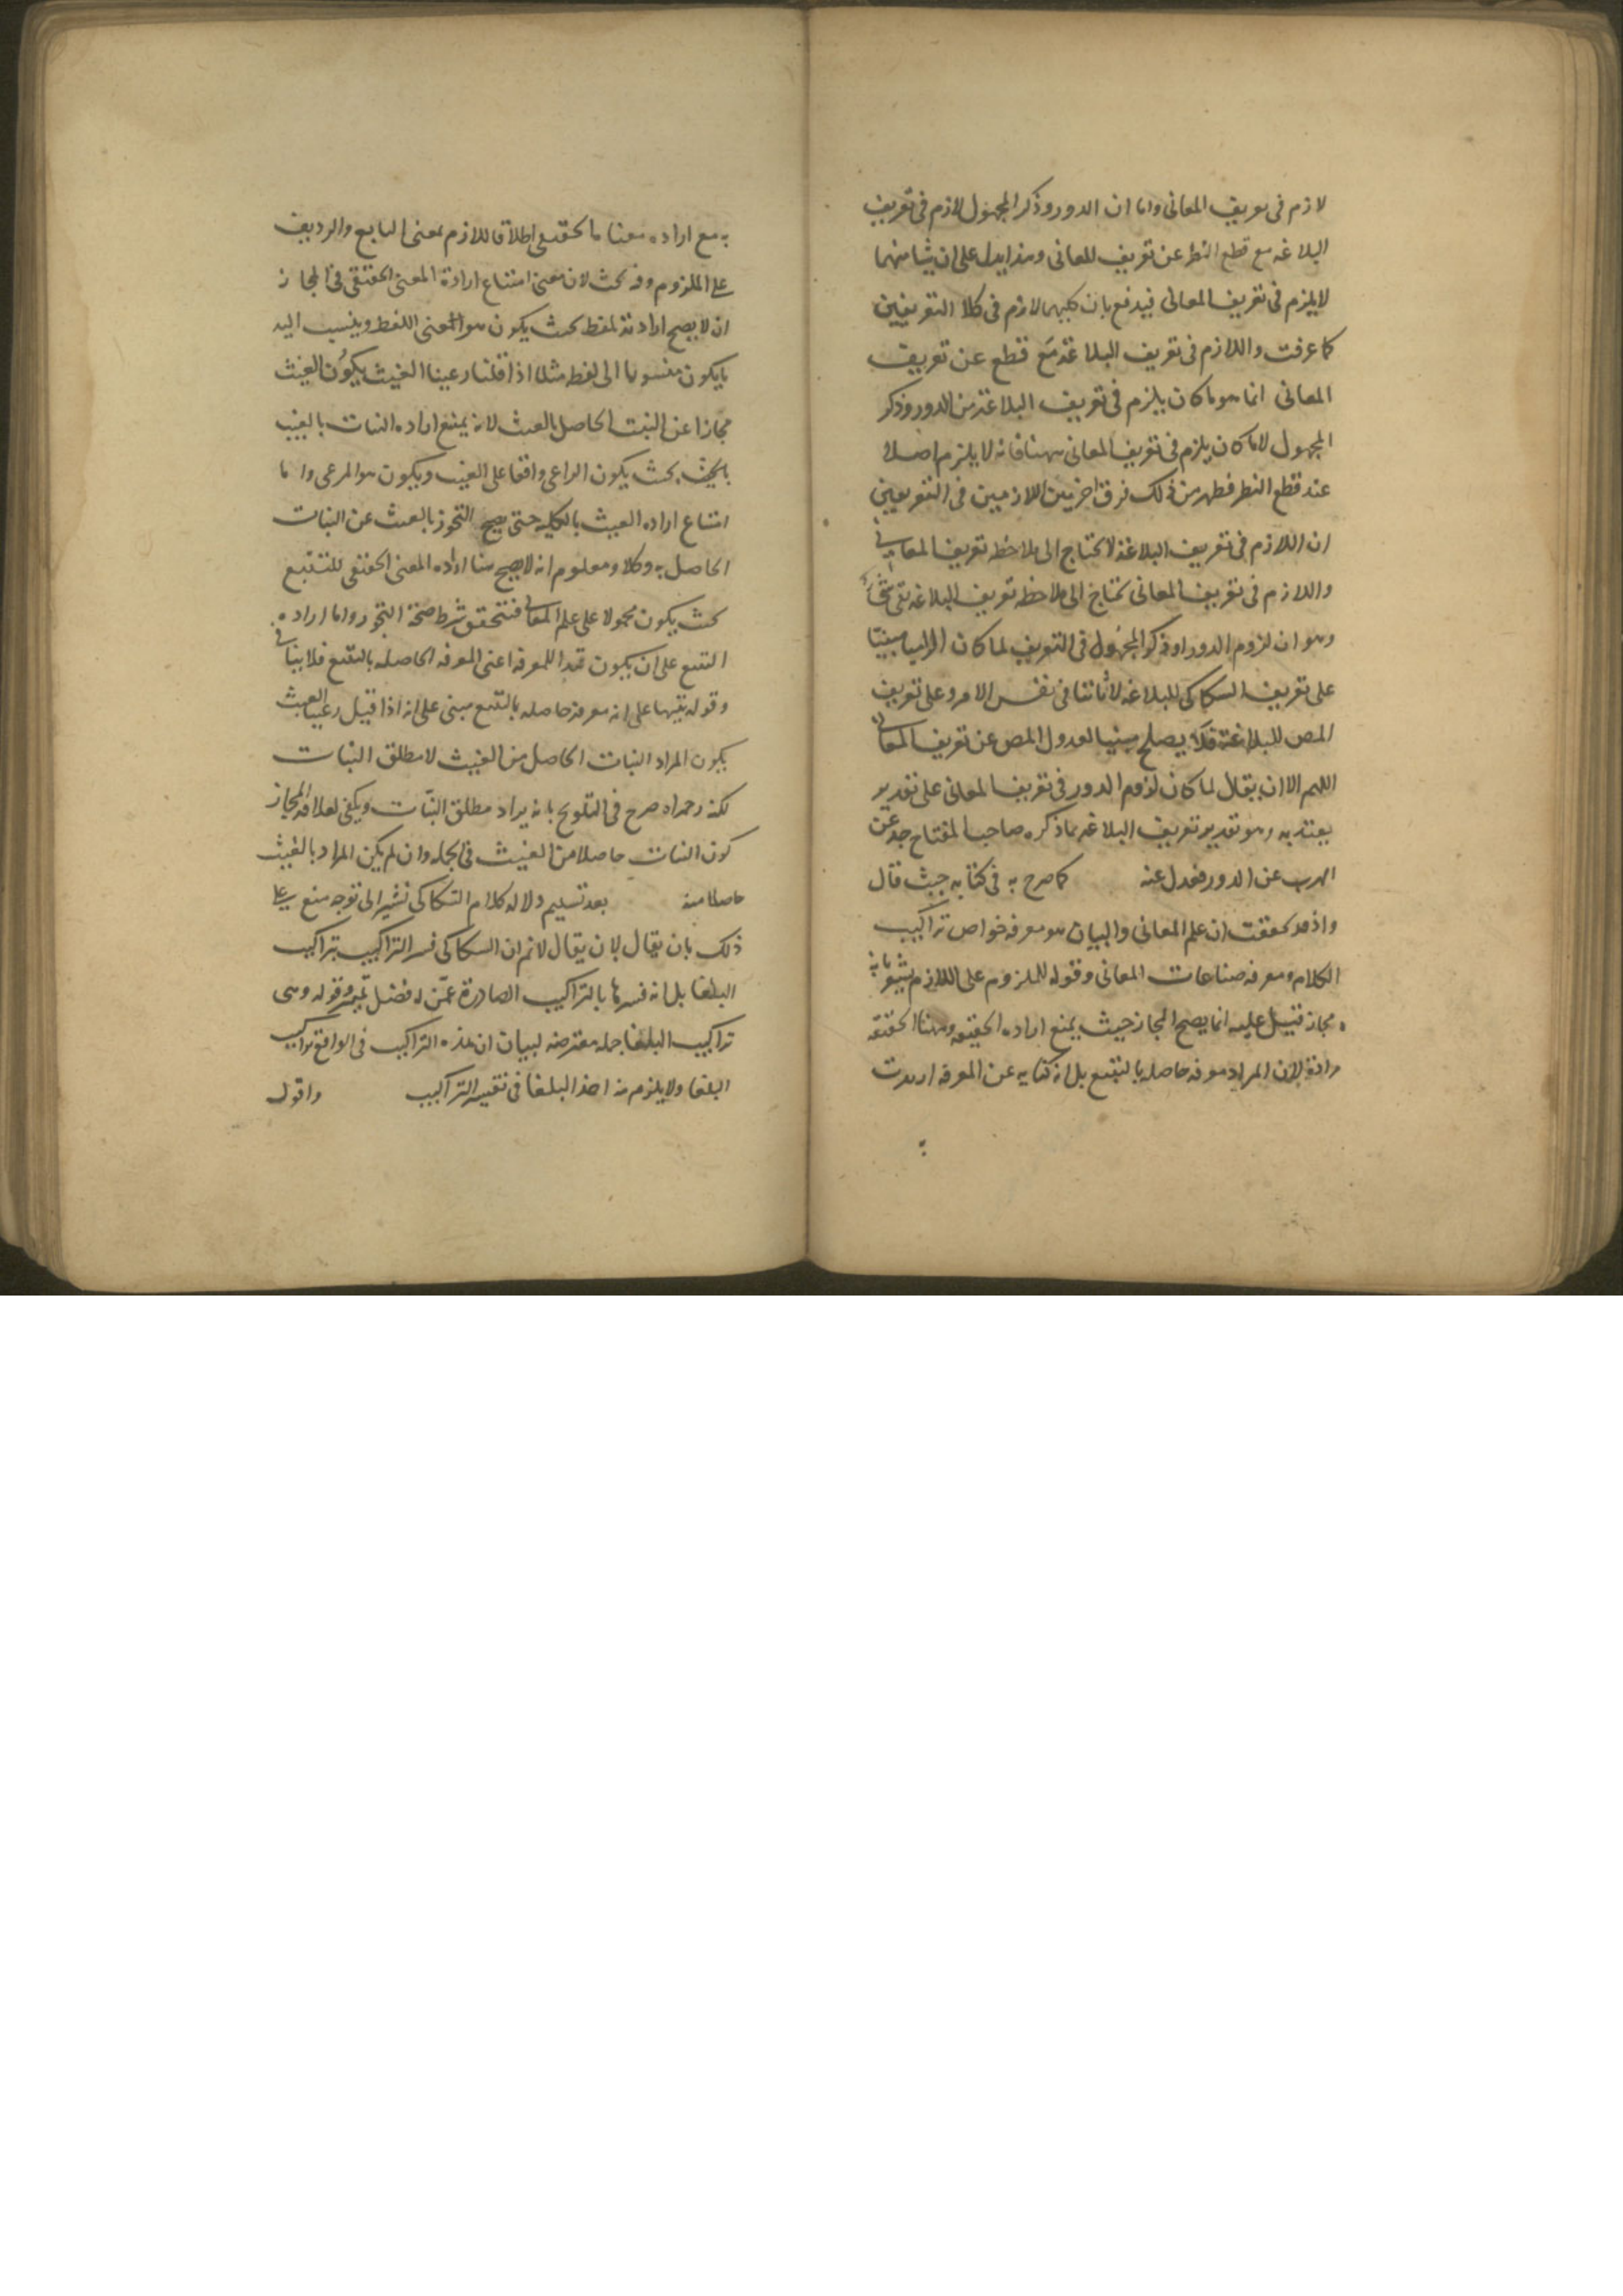 لازم فى تعريف المعانى واما ان الدور وذكر المجهول لازم فى تعريف
البلاغه مع قطع النظر عن تعريف المعانى وهذا يدل على ان شيا منهما
لا يلزم فى تعريف المعانى فيدفع بان كليهما لازم فى كلا التعريفين
كما عرفت واللازم فى تعريف البلاغة مع قطع عن تعريف
المعانى انما هو ما كان يلزم فى تعريف البلاغة من الدور وذكر
المجهول لا ما كان يلزم فى تعريف المعانى ههنا فانه لا يلزم اصلا
عند قطع النظر فظهر من ذلك فرق اخر بين اللازمين فى التعريفين
ان اللازم فى تعريف البلاغة لا يحتاج الى ملاحظه تعريف المعانى
واللازم فى تعريف المعانى يحتاج الى ملاحظه تعريف البلاغه بقى شىء
وهو ان لزوم الدور او ذكر المجهول فى التعريف لما كان الزاميا مبنيّا
على تعريف السكاكى للبلاغه لا ثابتا فى نفس الامر وعلى تعريف
المص للبلاغة فلا يصلح مبنيا لعدول المص عن تعريف المعانى
اللهم الا ان يقال لما كان لزوم الدور فى تعريف المعانى على تقدير
يعتد به وهو تقدير تعريف البلاغه بما ذكره صاحب المفتاح جد عن
الهرب عن الدور فعدل عنه كما صرح به فى كتابه حيث قال
واذ قد تحققت ان علم المعانى والبيان هو معرفه خواص تراكيب
الكلام ومعرفه صناعات المعانى وقوله للملزوم على اللازم يشعر بانه
مجاز قيل عليه انما يصح المجاز حيث يمنع اراده الحقيقه وههنا الحقيقه
مرادة لان المراد معرفه حاصله بالتتبع بل انه كنايه عن المعرفه اريدت
به مع اراده معناها الحقيقى اطلاقا للازم بمعنى التابع والرديف
على الملزوم وفه بحث لان معنى امتناع ارادة المعنى الحقيقى فى المجاز
ان لا يصح ارادته للفظ بحيث يكون هو المعنى اللفظ وينسب اليه
ما يكون منسوبا الى لفظ مثلا اذا قلنا رعينا الغيث يكون الغيث
مجازا عن النبت الحاصل بالغيث لانه يمتنع اراده النبات بالغيث
بالغيث بحيث يكون الراعى واقعا على الغيث ويكون هو المرعى واما
امتناع اراده الغيث بالكليه حتى يصح التجوز بالغيث عن النبات
الحاصل به وكلا ومعلوم انه لا يصح هنا اراده المعنى الحقيقى للتتبع
بحيث يكون محمولا على علم المعانى فتتحقق شرط صحة التجوز واما اراده
التتبع على ان يكون قيد اللمعرفه اعنى المعرفه الحاصله بالتتبع فلا ينافى
وقوله تنبيها على انه معرفه حاصله بالتتبع مبنى على انه اذا قيل رعينا الغيث
يكون المراد النبات الحاصل من الغيث لا مطلق النبات
لكنه رحمه الله صرح فى التلويح بانه يراد مطلق النبات ويكفى لعلاقه المجاز
كون النبات حاصلا من الغيث فى الجمله وان لم يكن المراد بالغيث
حاصلا منه بعد تسليم دلاله كلام السكاكى تشير الى توجه منع على
ذلك بان يقال لان يقال لانم ان السكاكى فسر التراكيب بتراكيب
البلغا بل انه فسرها بالتراكيب الصادرة عمّن له فضل تميّز وقوله وهى
تراكيب البلغا جمله معترضه لبيان ان هذه التراكيب فى الواقع تراكيب
البلغا ولا يلزم منه اخذ البلغا فى تفسير التراكيب واقول